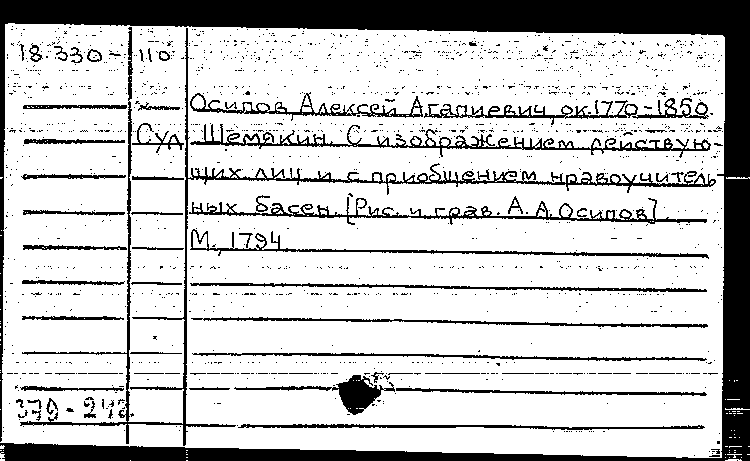 18.330-110
Осипов, Алексей Агапиевич, ок.1770-1850
Суд Шемякин. С изображением действую-
щих лиц и с приобщением нравоучитель-
ных басен. [Рис. и грав. А.А.Осипов].
М., 1794
379-242